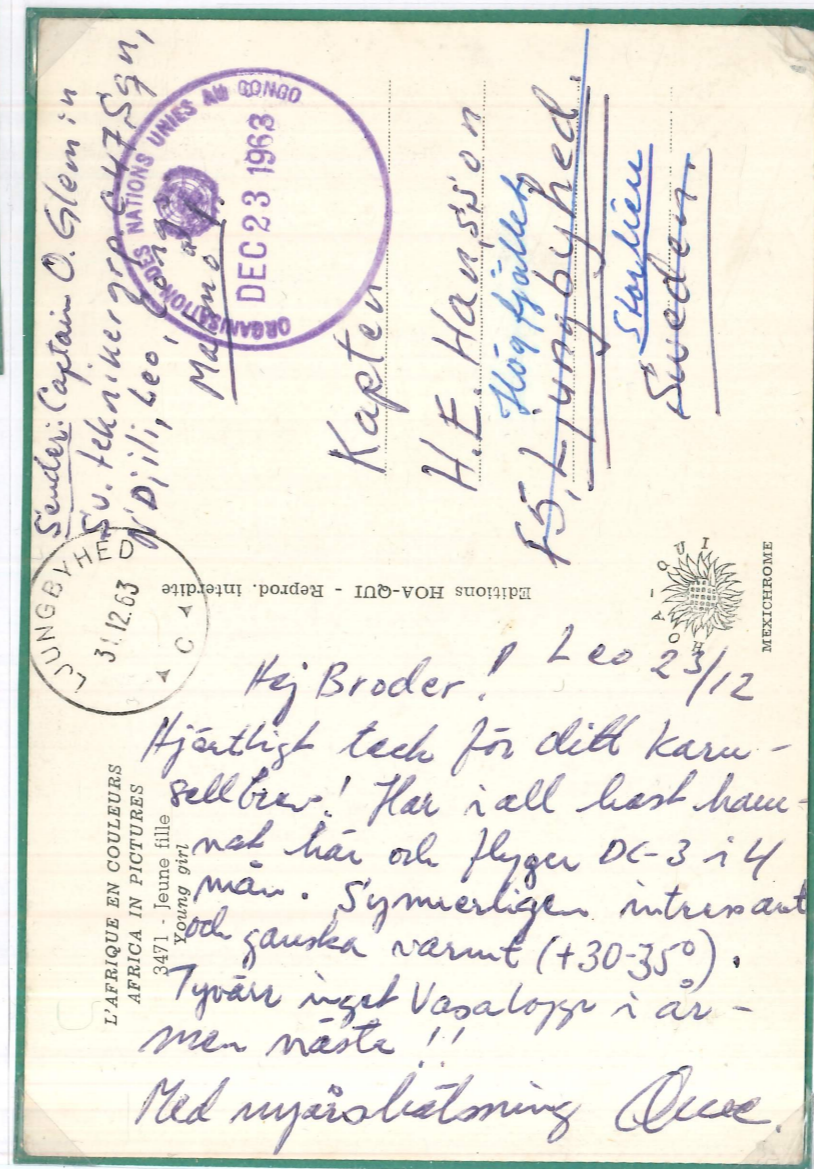 Sender: Captain O. Glemin
Sv. teknikergrp, c/o 47 Sqn,
N'Djili, Leo, Congo
ORGANISATION DES NATIONS UNIES AU CONGO
DEC 23 1963
Kapten
H.E. Hansson
Högfjället
F5, Ljungbyhed.
Storlien
Sweden.
LJUNGBYHED
31.12.63
C
Editions HOA-QUI - Reprod. interdite
HOA-QUI
MEXICHROME
L'AFRIQUE EN COULEURS
AFRICA IN PICTURES
3471 - Jeune fille
Young girl
Leo 23/12
Hej Broder!
Hjärtligt tack för ditt karu-
sellbrev! Har i all hast ham-
nat här och flyger DC-3 i 4
mån. Synnerligen intressant
och ganska varmt (+30-35°).
Tyvärr inget Vasalopp i år -
men nästa!!
Med nyårshälsning